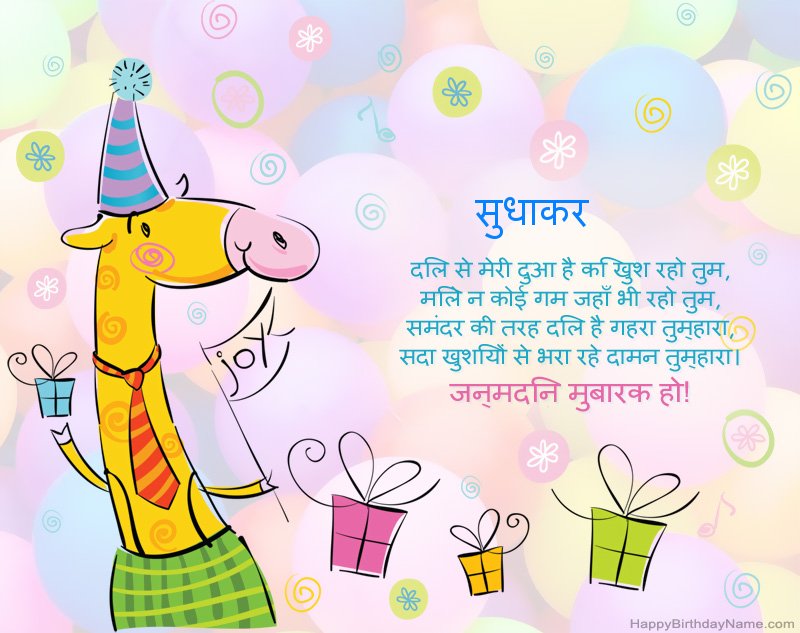 सुधाकर
दिल से मेरी दुआ है कि खुश रहो तुम,
मिले न कोई गम जहाँ भी रहो तुम,
समंदर की तरह दिल है गहरा तुम्हारा,
सदा खुशियों से भरा रहे दामन तुम्हारा।
जन्मदिन मुबारक हो!
joy
HappyBirthdayName.com